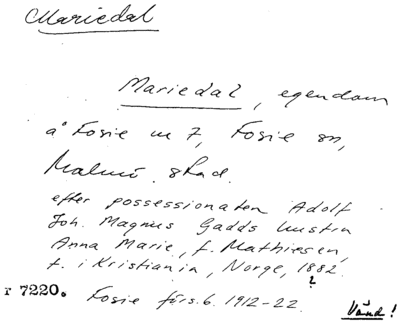 Mariedal
Mariedal, egendom
å Fosie nr 7, Fosie sn,
Malmö stad.
efter possessionaten Adolf
Joh. Magnus Gadds hustru
Anna Marie, f. Mathiesen,
f. i Kristiania, Norge, 1882.
?
r 7220. Fosie förs.b. 1912-22.
Vänd!